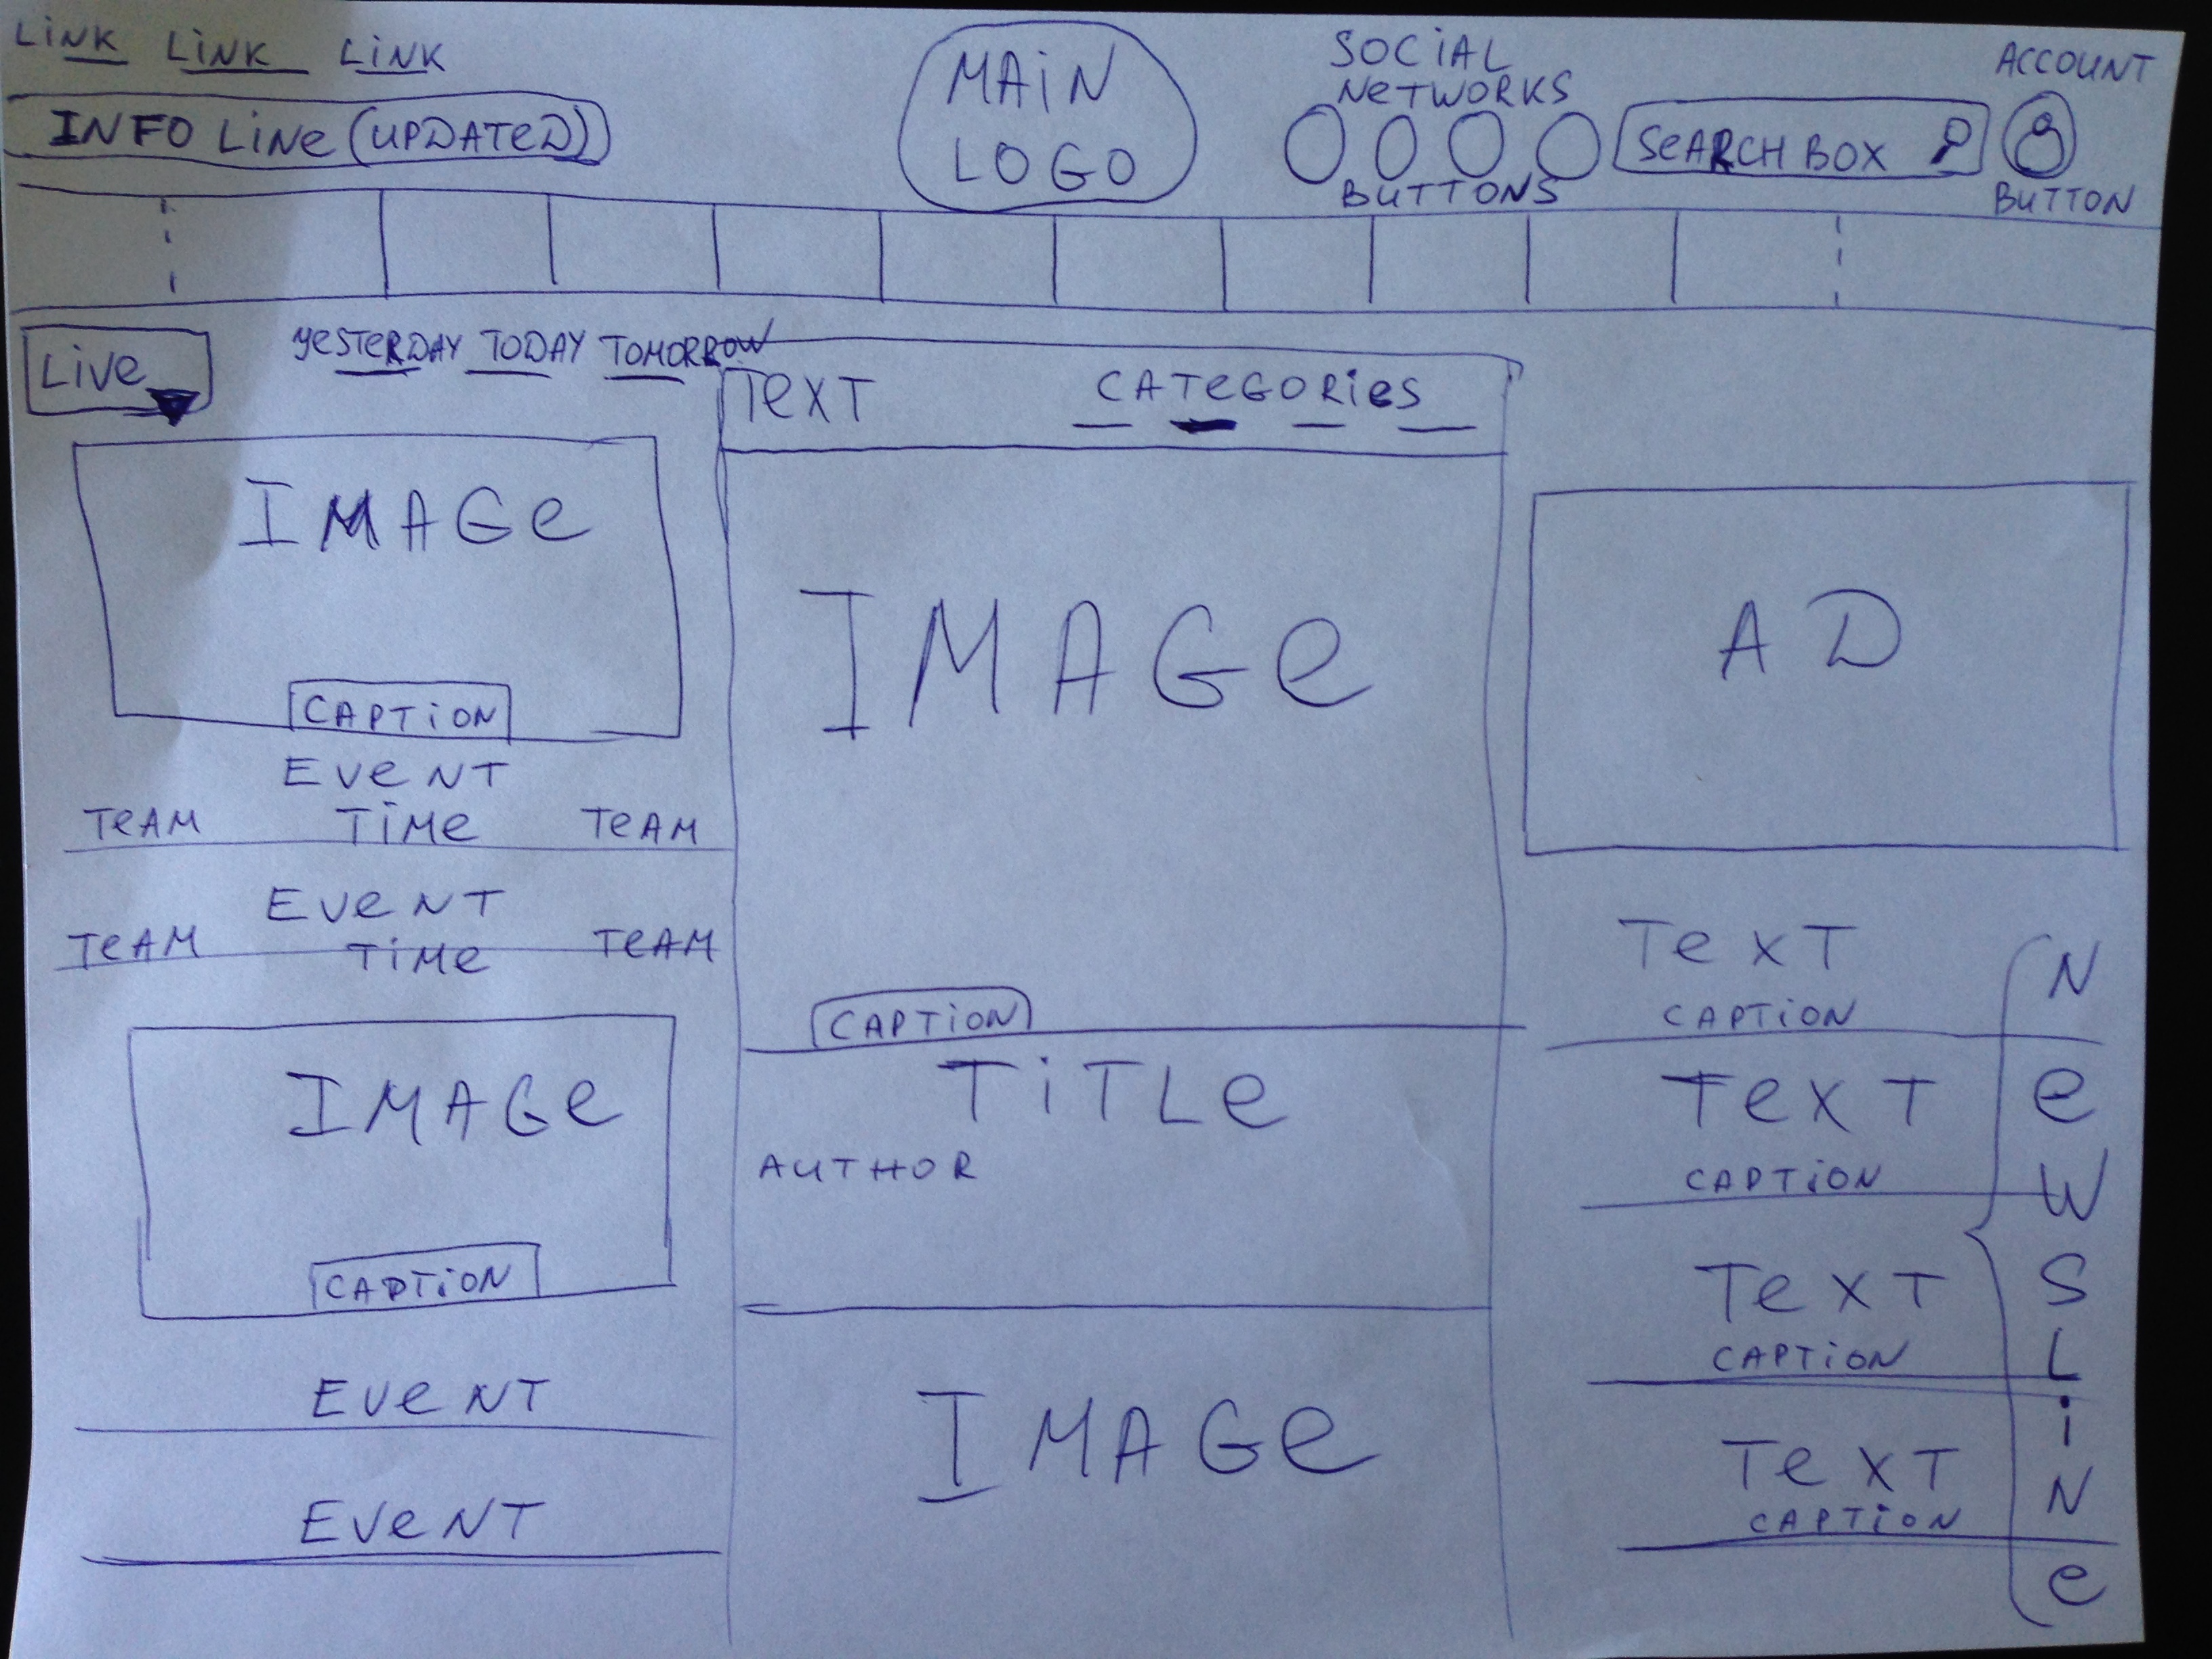 LiNK LiNK LiNK
INFO LiNe (UPDATeD)
MAiN
LOGO
SOCiAL
NeTWORKS
BUTTONS
SeARCH BOX
ACCOUNT
BUTTON
Live
YeSTeRDAY TODAY TOMORROW
IMAGe
CAPTiON
EVeNT
TeAM TiMe TeAM
EVeNT
TeAM TiMe TeAM
IMAGe
CAPTiON
EVeNT
EVeNT
TeXT CATeGORieS
IMAGe
CAPTiON
TiTLe
AUTHOR
IMAGe
AD
TeXT
CAPTiON
TeXT
CAPTiON
TeXT
CAPTiON
TeXT
CAPTiON
NeWSLiNe